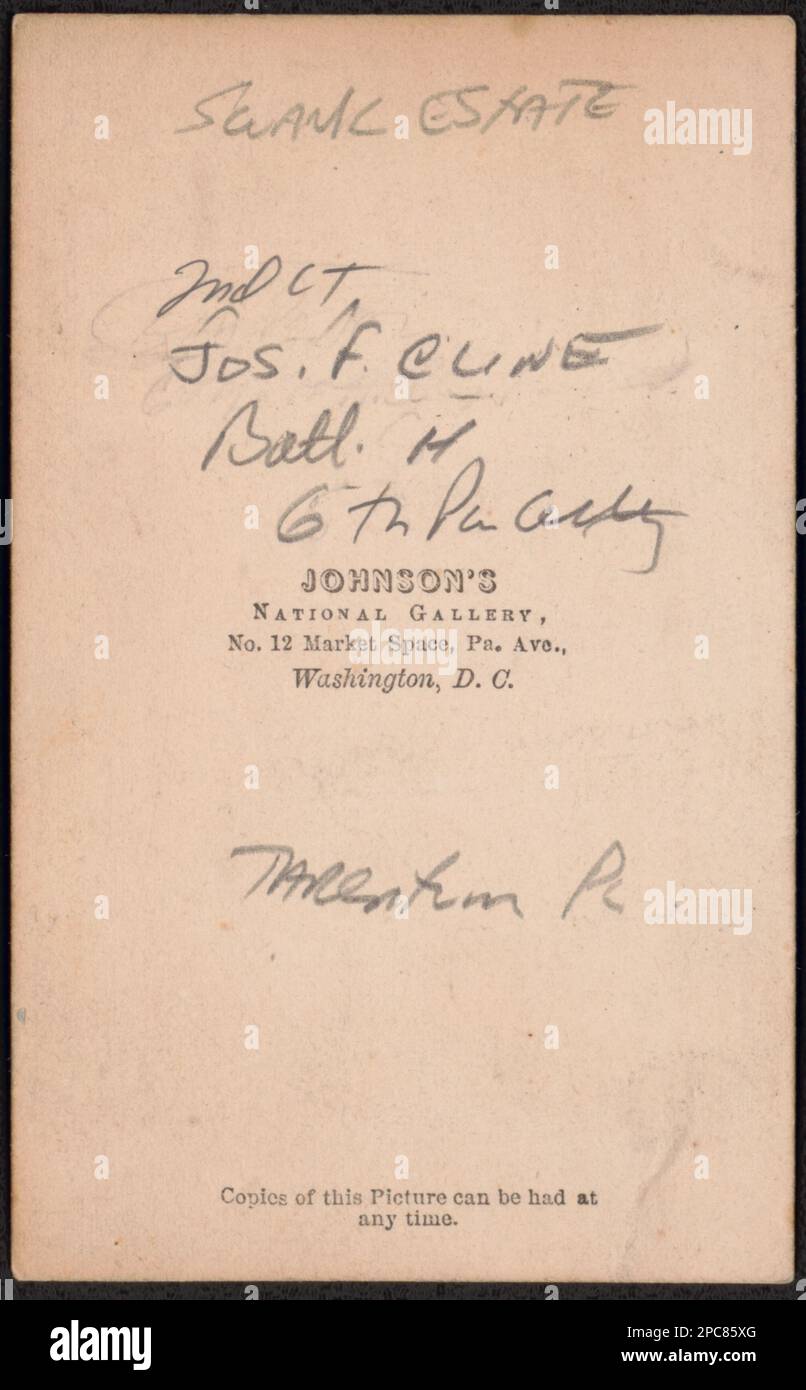 SWANK ESTATE
2nd LT
JOS. F. CLINE
Batt. H
6th Pa Artly
JOHNSON'S
NATIONAL GALLERY,
No. 12 Market Space, Pa. Ave.,
Washington, D. C.
TARentum Pa
Copies of this Picture can be had at
any time.
alamy
alamy
alamy
alamy
Image ID: 2PC85XG
www.alamy.com